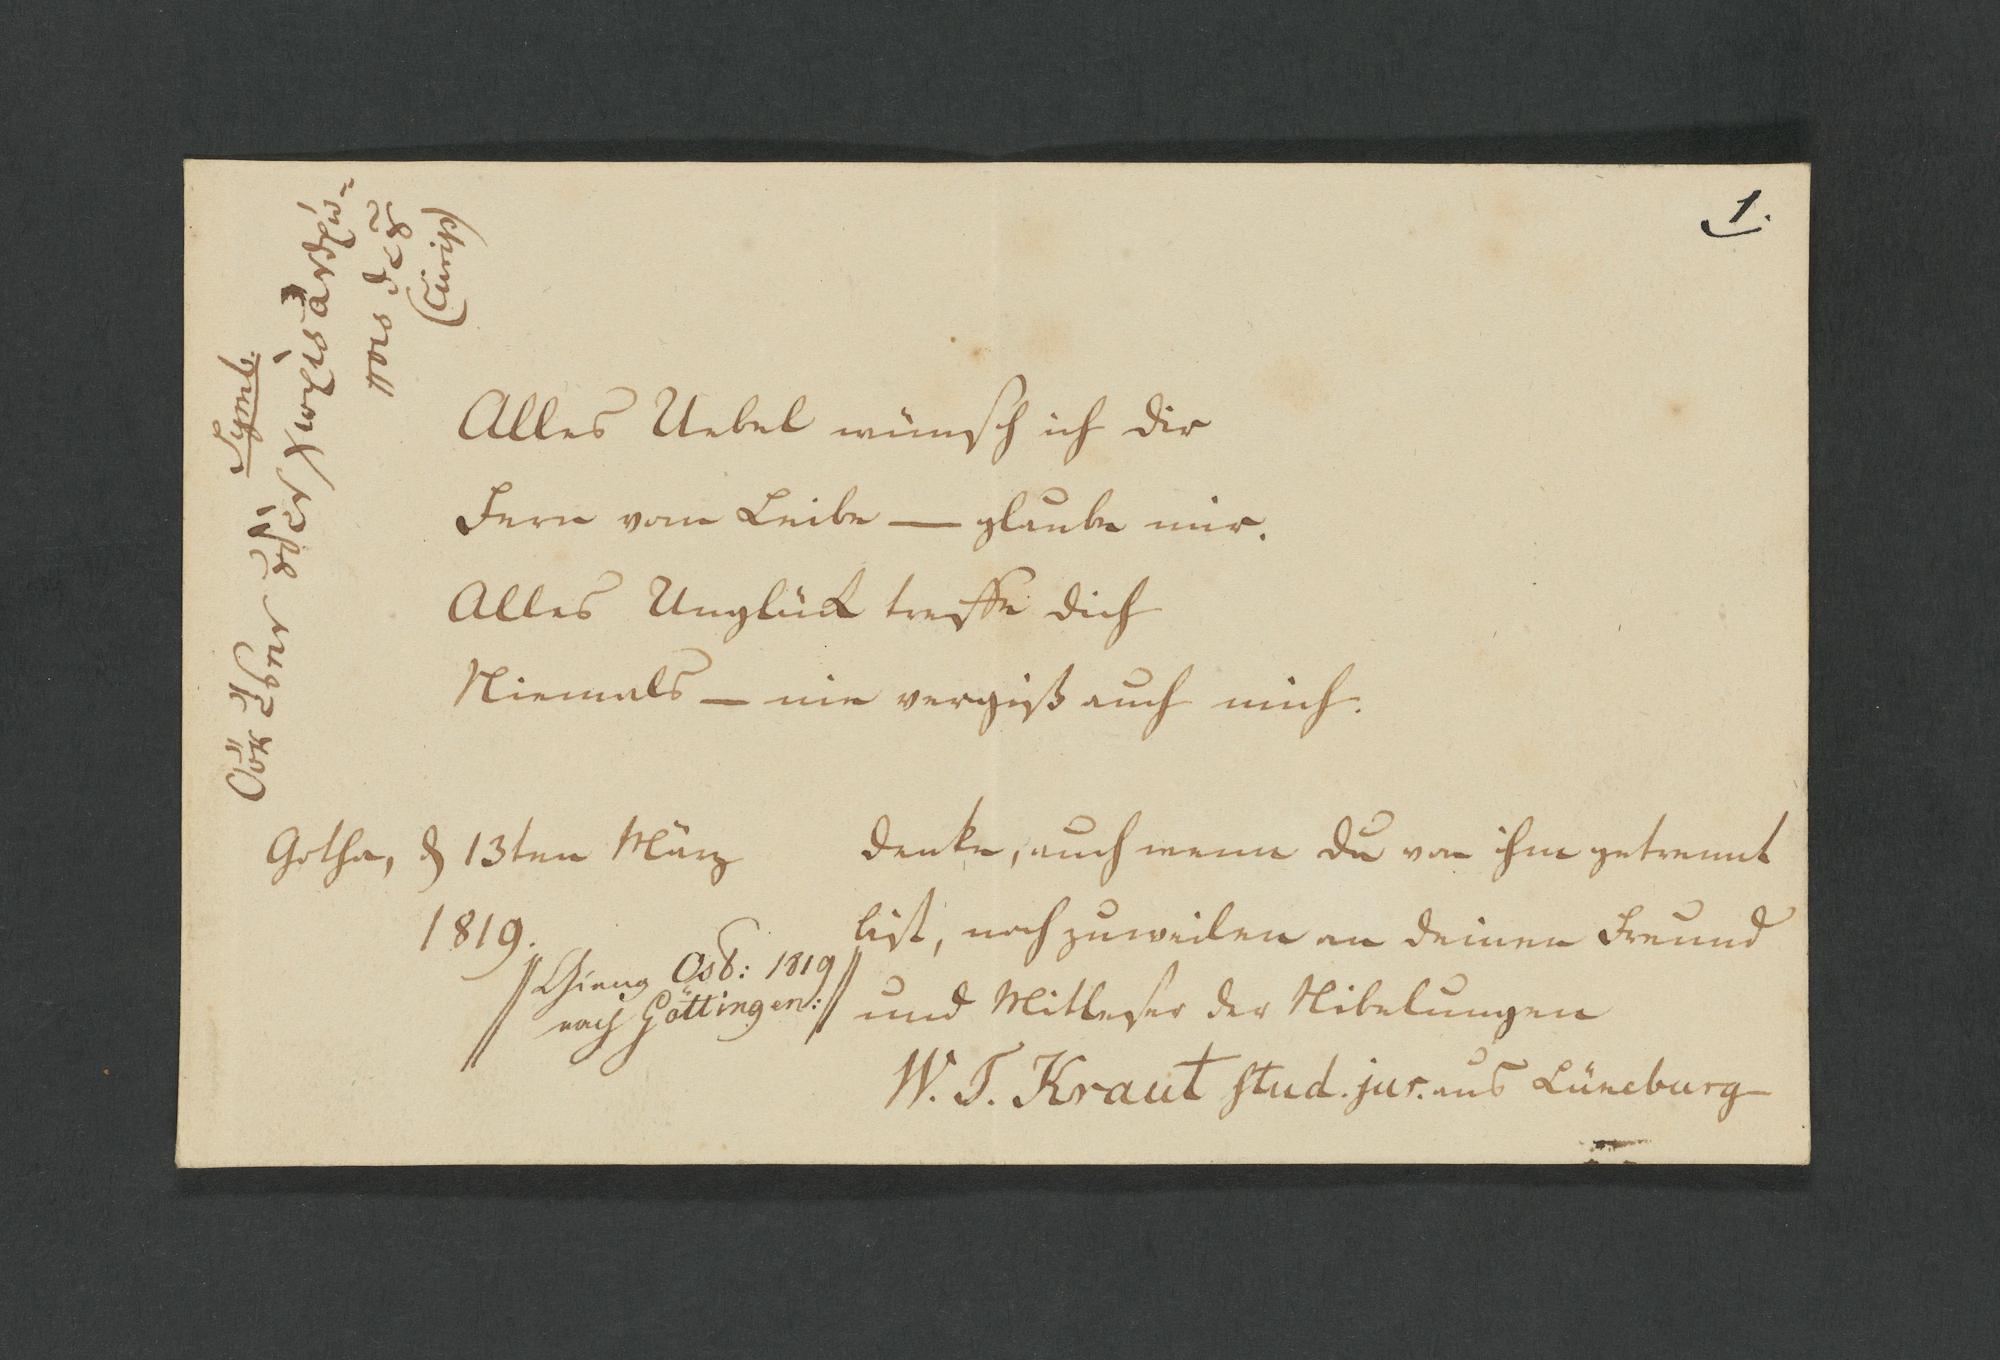 1.
Symb.
Οὐκ ἔστιν οὐδὲν χωρὶς ἀνθρώ-
ποις θεοῦ
(Eurip)
Alles Uebel wünsch ich dir
Fern vom Leibe — glaube mir.
Alles Unglück treffe dich
Niemals — nie vergiß auch mich.
Gotha, d 13ten März
1819.
// Gieng Ost: 1819
nach Göttingen: //
denke, auch wenn du von ihm getrennt
bist, noch zuweilen an deinen Freund
und Mitleser der Nibelungen
W. T. Kraut stud. jur. aus Lüneburg